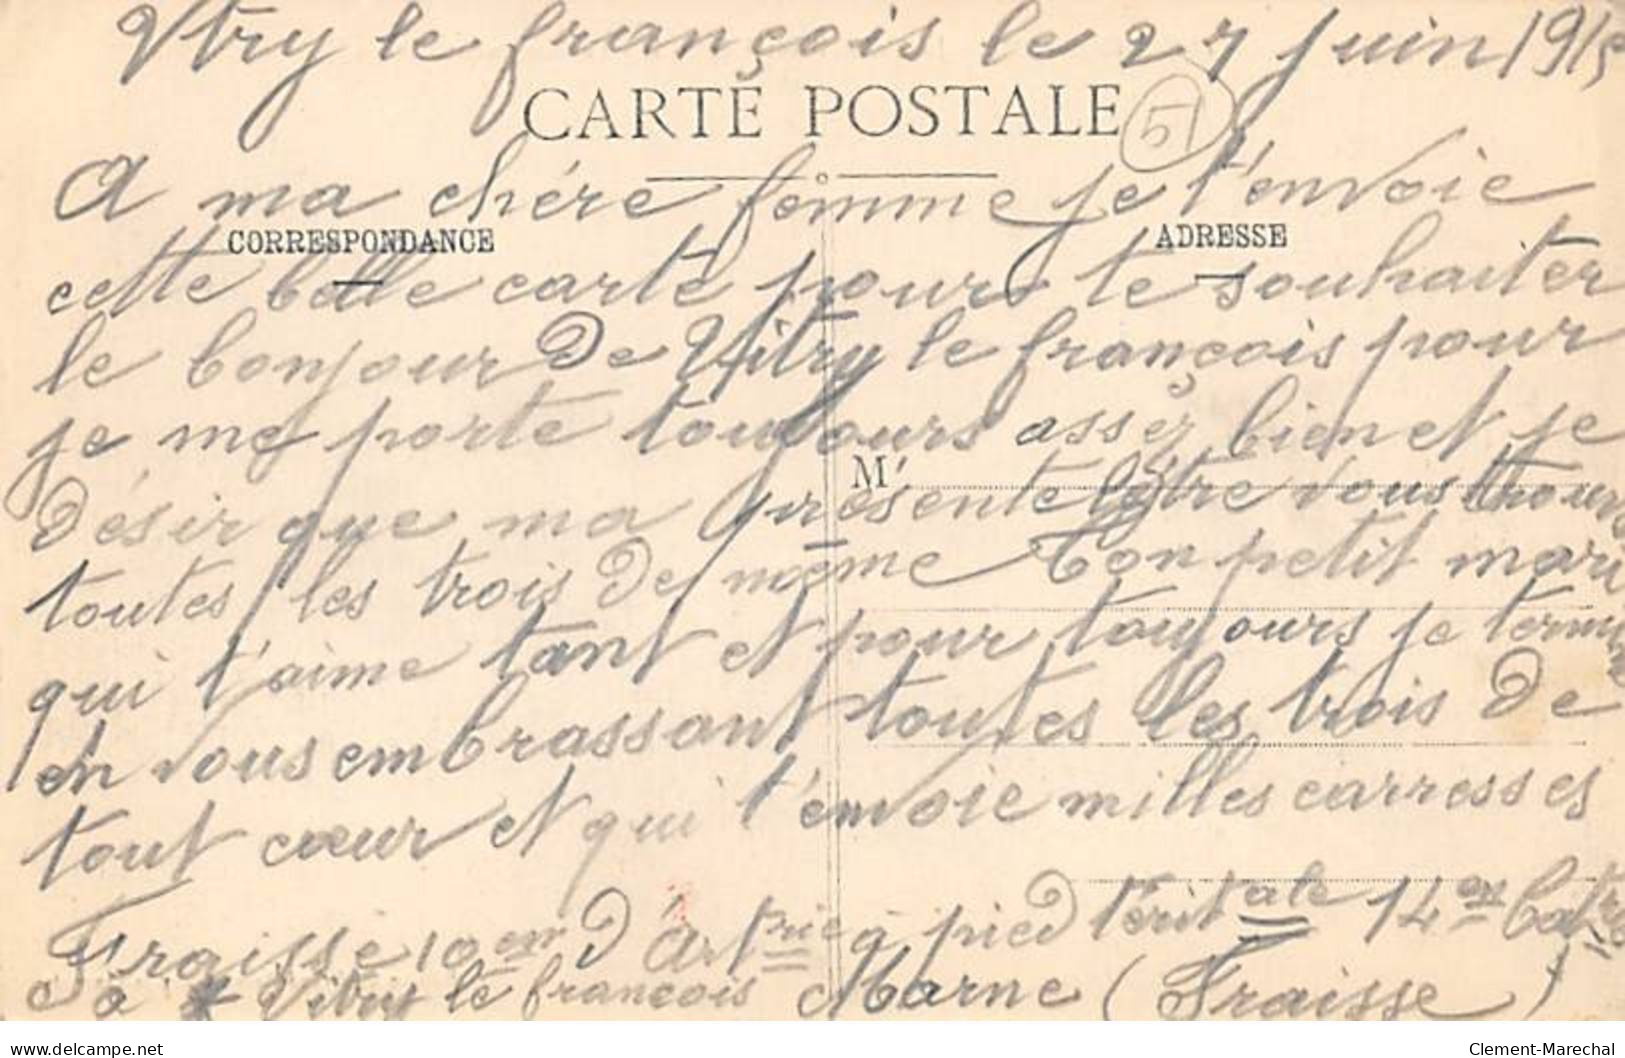 Vtry le françois le 27 juin 1915
CARTE POSTALE
51
A ma chére femme je t'envoie
CORRESPONDANCE
ADRESSE
cette belle carte pour te souhaiter
le bonjour De Vitry le françois pour
je me porte toujours assez bien et je
M
Désir que ma présente lettre vous trouve
toutes les trois De même Ton petit mari
qui t'aime tant et pour toujours je termine
en vous embrassant toutes les trois De
tout cœur et qui t'envoie milles carresses
Fraisse 10em D'Artrie à pied térit ale 14em Batrie
à Vitry le françois Marne (Fraisse)
delcampe.net
Clement-Marechal